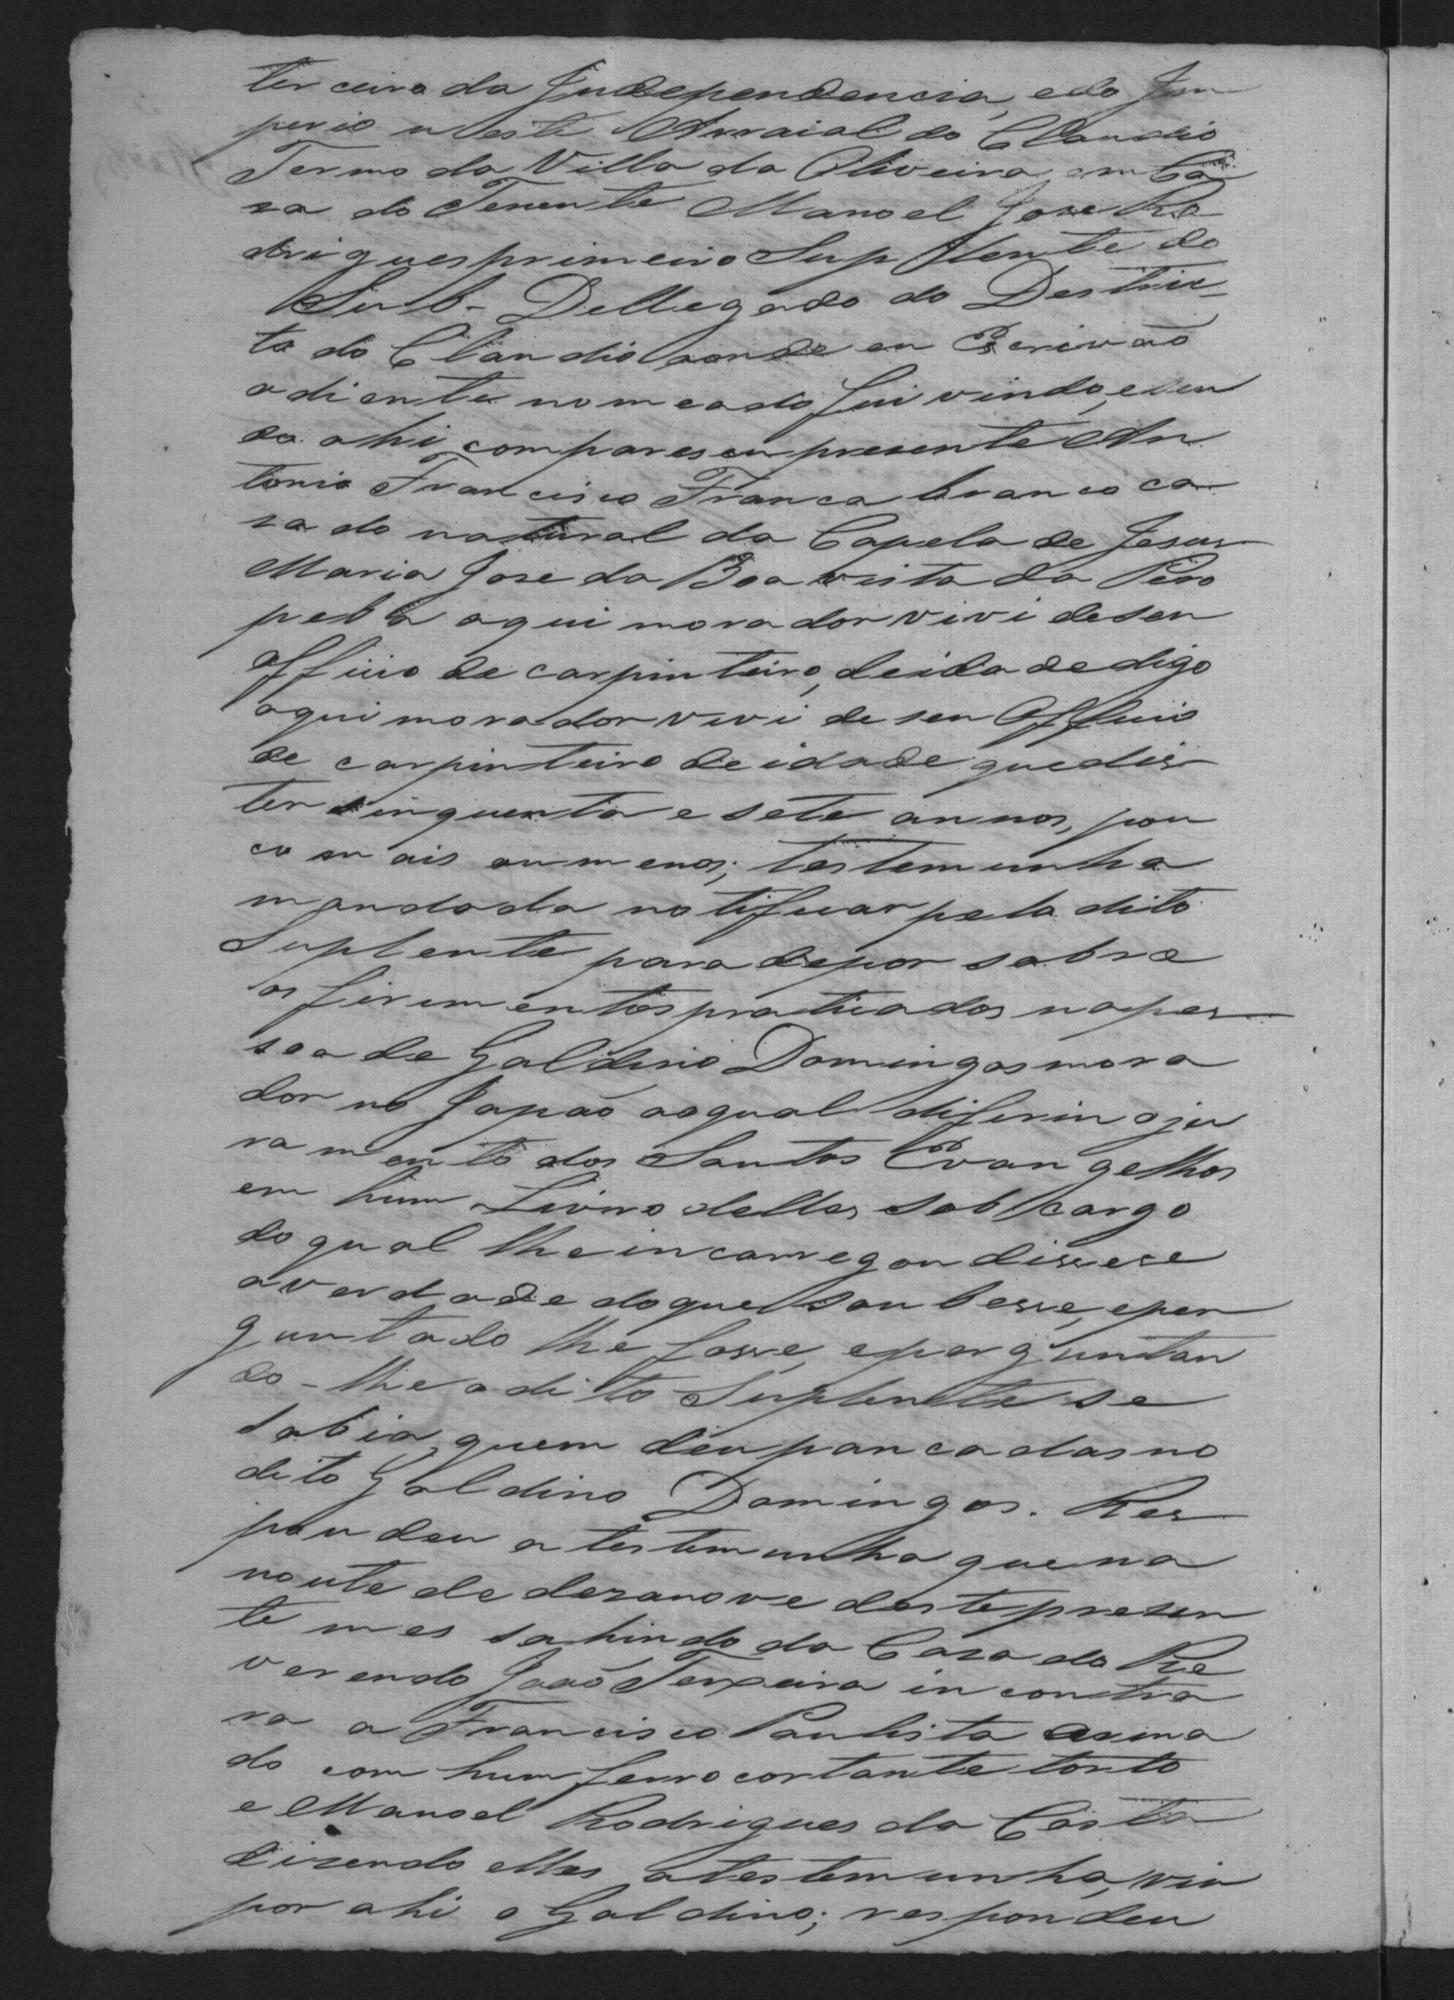 terceiro da Independencia, e do Im
perio n'este Arraial do Claudio
Termo da Villa da Oliveira, em Ca
za do Tenente Manoel Jose Ro
drigues primeiro Supllente do
Sub-Dellegado do Destric-
to do Claudio aonde eu Escrivaõ
adiente nomeado fui vindo, e sen
do ahi compareseu presente An
tonio Francisco Franca branco ca
zado natural da Capela de Jesus
Maria Jose da Boa vista da Piro
peba aqui morador vivi de seu
officio de carpinteiro, deidade digo
aqui morador vivi de seu Officio
de carpinteiro de idade que dis
ter sinquenta e sete annos, pou
co mais ou menos; testemunha
mandada notificar pelo dito
Suplente para depor sobre
os firimentos praticados na pes
soa de Galdino Domingos mora
dor no Japaõ ao qual diferin o ju
ramento dos Santos Evangelhos
em hum Livro delles sob cargo
do qual lhe incarregou dissese
a verdade do que soubesse, e per
guntado lhe fosse, e perguntan
do-lhe o dito Suplente se
sabia quem deu pancadas no
dito Galdino Domingos. Res
pondeu a testemunha que na
noute de dezanove deste presen
te mes sahindo da Caza do Re
verendo Joaõ Texeira incontra
ra a Francisco Paulista arma
do com hum ferro cortante torto
e Manoel Rodrigues da Costa
dizendo elles a testemunha, viu
por ahi o Galdino; respondeu